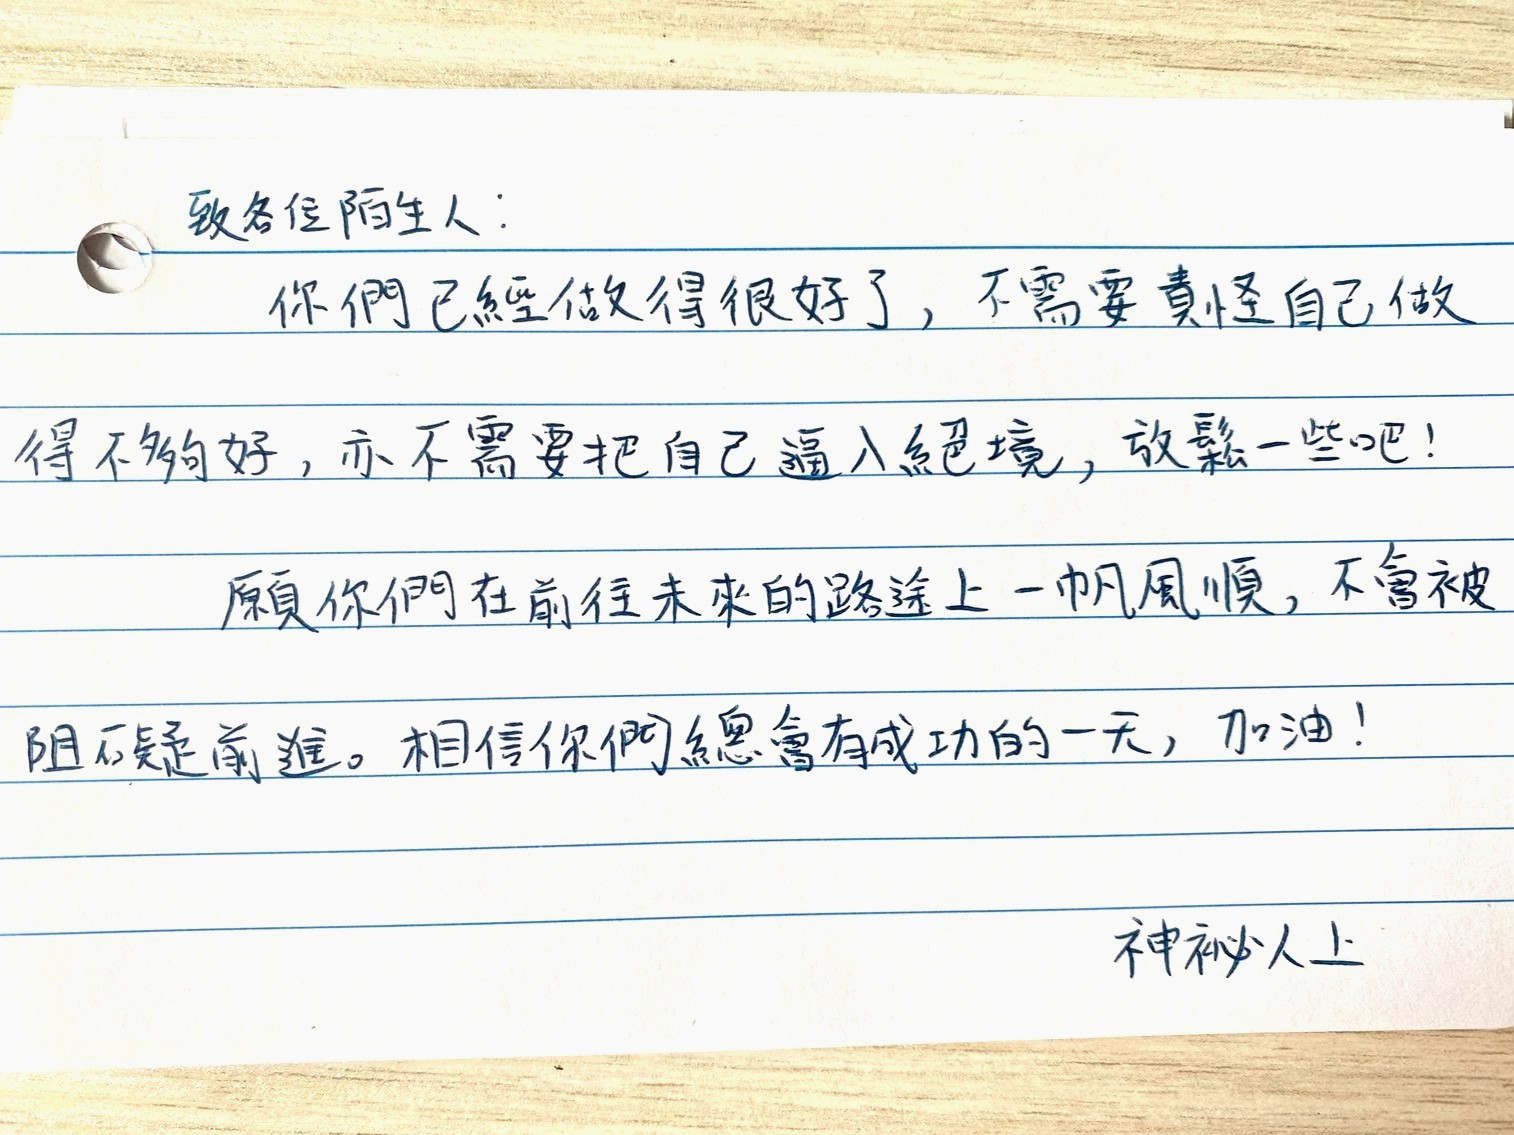 致各位陌生人：
你們已經做得很好了，不需要責怪自己做
得不夠好，亦不需要把自己逼入絕境，放鬆一些吧！
願你們在前往未來的路途上一帆風順，不會被
阻礙前進。相信你們總會有成功的一天，加油！
神祕人上